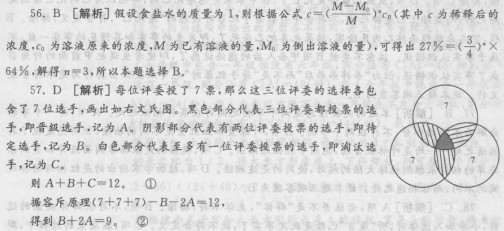 56. B 【解析】假设食盐水的质量为1,则根据公式 c=(\frac{M-M₀}{M})ⁿc₀(其中 c 为稀释后的
浓度,c₀ 为溶液原来的浓度,M 为已有溶液的量,M₀ 为倒出溶液的量),可得出 27%=(\frac{3}{4})ⁿ×
64%,解得 n=3,所以本题选择 B。
57. D 【解析】每位评委投了7票,那么这三位评委的选择各包
含了7位选手,画出如右文氏图。黑色部分代表三位评委都投票的选
手,即晋级选手,记为 A。阴影部分代表有两位评委投票的选手,即待
定选手,记为 B。白色部分代表至多有一位评委投票的选手,即淘汰选
手,记为 C。
则 A+B+C=12。 ①
据容斥原理(7+7+7)-B-2A=12,
得到 B+2A=9。 ②
7
7
7